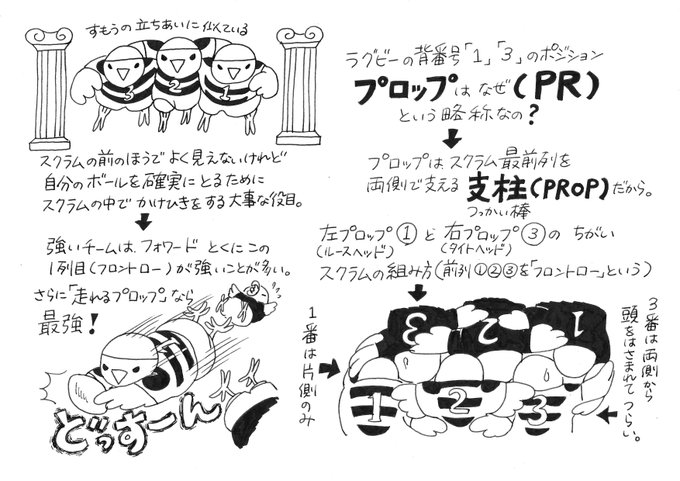 ラグビーの背番号「1」「3」のポジション
プロップはなぜ(PR)
という略称なの?
プロップはスクラム最前列を
両側で支える支柱(PROP)だから。
つっかい棒
左プロップ①と右プロップ③のちがい
(ルースヘッド)(タイトヘッド)
スクラムの組み方(前列①②③を「フロントロー」という)
3 2 1
1 2 3
3番は両側から
頭をはさまれてつらい。
1番は片側のみ
すもうの立ちあいに似ている
3 2 1
スクラムの前のほうでよく見えないけれど
自分のボールを確実にとるために
スクラムの中でかけひきをする大事な役目。
強いチームは、フォワードとくにこの
1列目(フロントロー)が強いことが多い。
さらに「走れるプロップ」なら
最強!
どっすーん